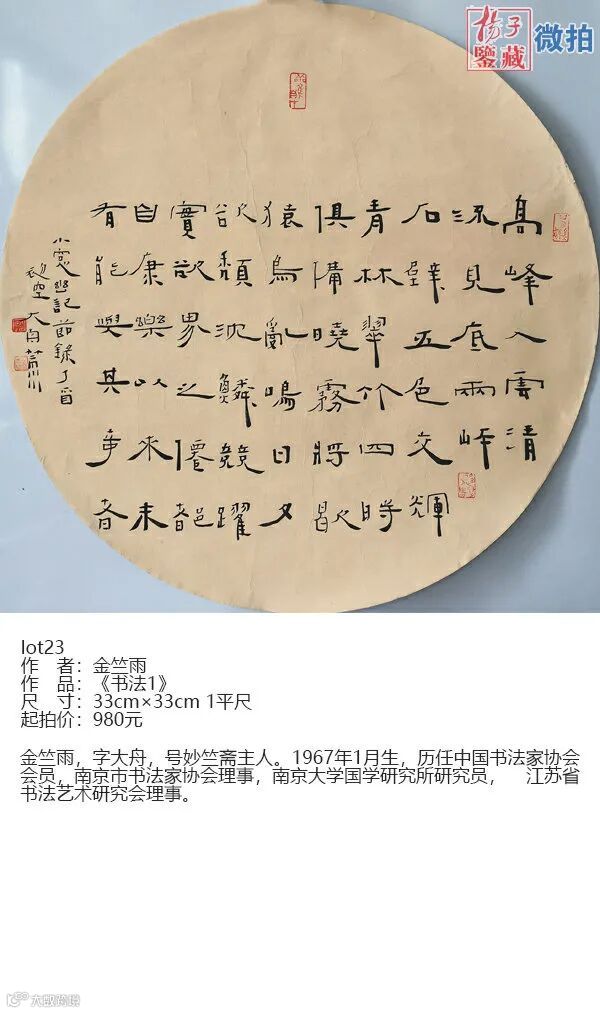 楊子
鑒藏
微拍
高峰入雲清
流見底兩岸
石壁五色交輝
青林翠竹四時
俱備曉霧將歇
猿鳥亂鳴日夕
欲頹沈鱗競躍
實欲界之僊都
自康樂以來未
有能與其事者
小窗幽記節錄丁酉
大舟
lot23
作 者：金竺雨
作 品：《书法1》
尺 寸：33cm×33cm 1平尺
起拍价：980元
金竺雨，字大舟，号妙竺斋主人。1967年1月生，历任中国书法家协会
会员，南京市书法家协会理事，南京大学国学研究所研究员， 江苏省
书法艺术研究会理事。